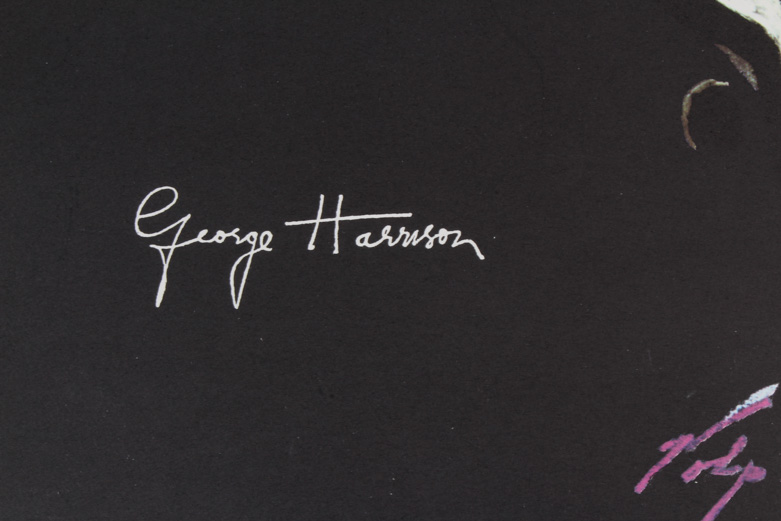 George Harrison
Volp